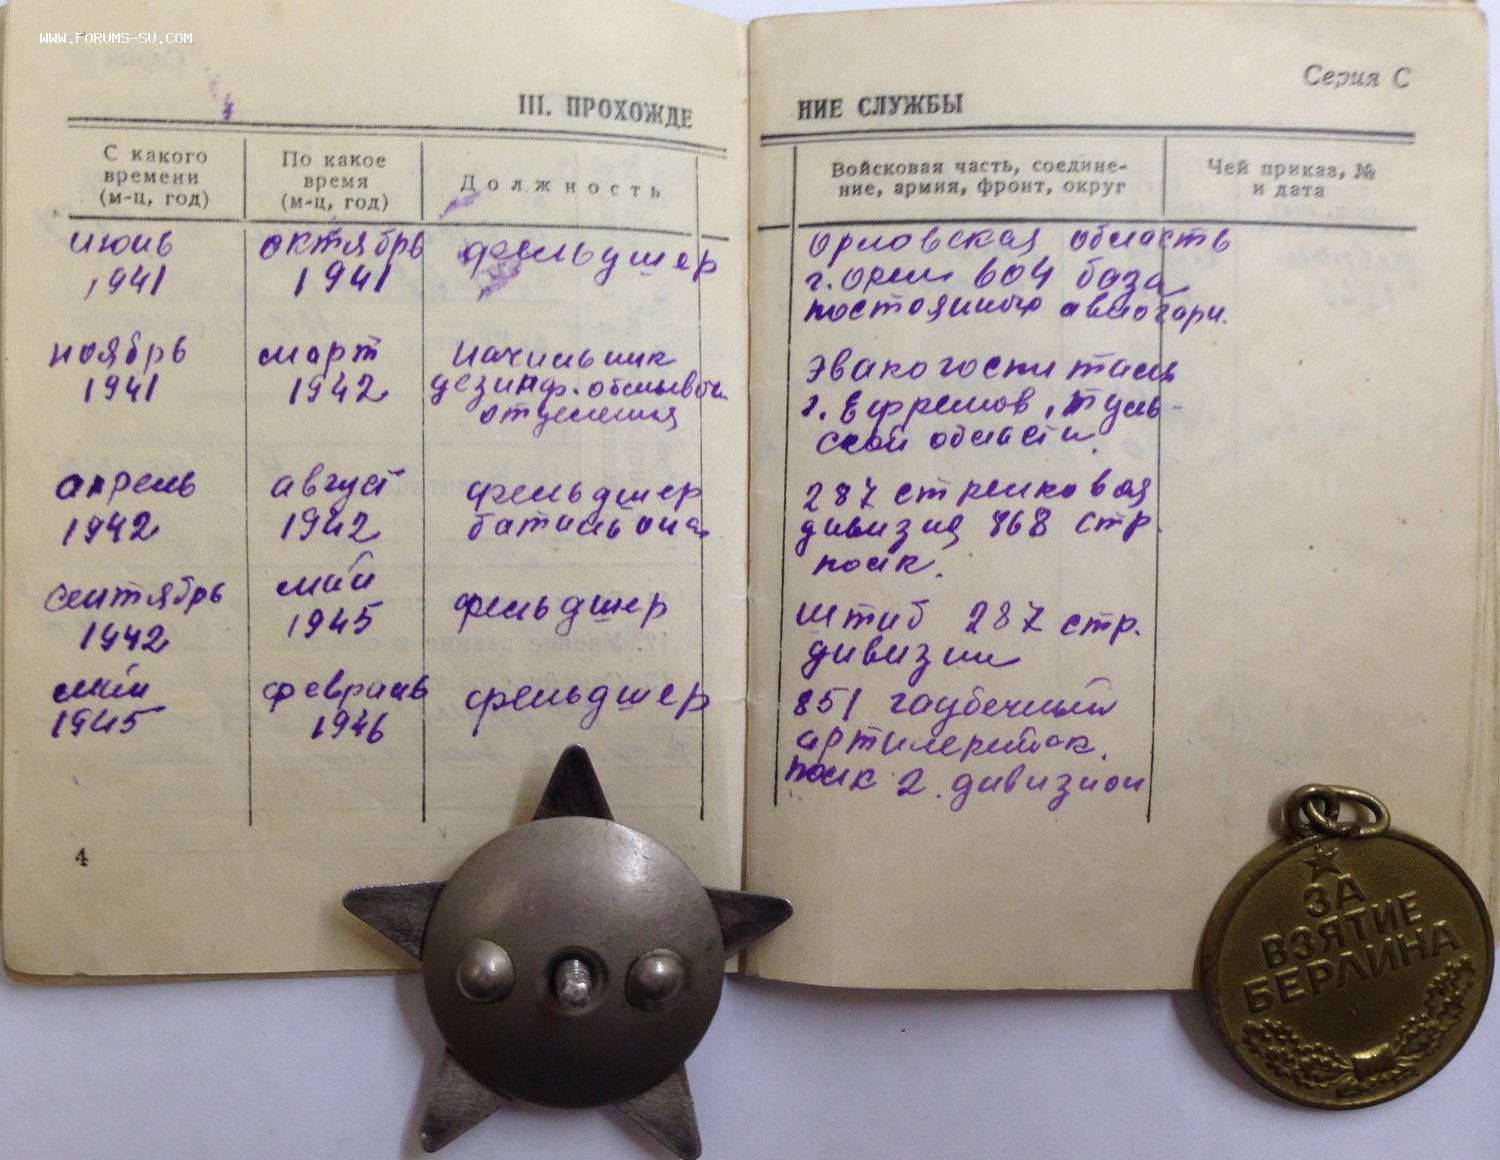 WWW.FORUMS-SU.COM
Серия С
III. ПРОХОЖДЕ
НИЕ СЛУЖБЫ
С какого
времени
(м-ц, год)
По какое
время
(м-ц, год)
Должность
Войсковая часть, соедине-
ние, армия, фронт, округ
Чей приказ, №
и дата
июнь
1941
октябрь
1941
фельдшер
орловская область
г. Орел 604 база
постоянного авиагарн.
ноябрь
1941
март
1942
начальник
дезинф. обмывоч.
отделения
эвакогоспиталь
г. Ефремов, Туль-
ской области.
апрель
1942
август
1942
фельдшер
батальона
287 стрелковая
дивизия 868 стр.
полк.
сентябрь
1942
май
1945
фельдшер
штаб 287 стр.
дивизии
май
1945
февраль
1946
фельдшер
851 гаубечный
артилерийск.
полк 2. дивизион
4
ЗА
ВЗЯТИЕ
БЕРЛИНА